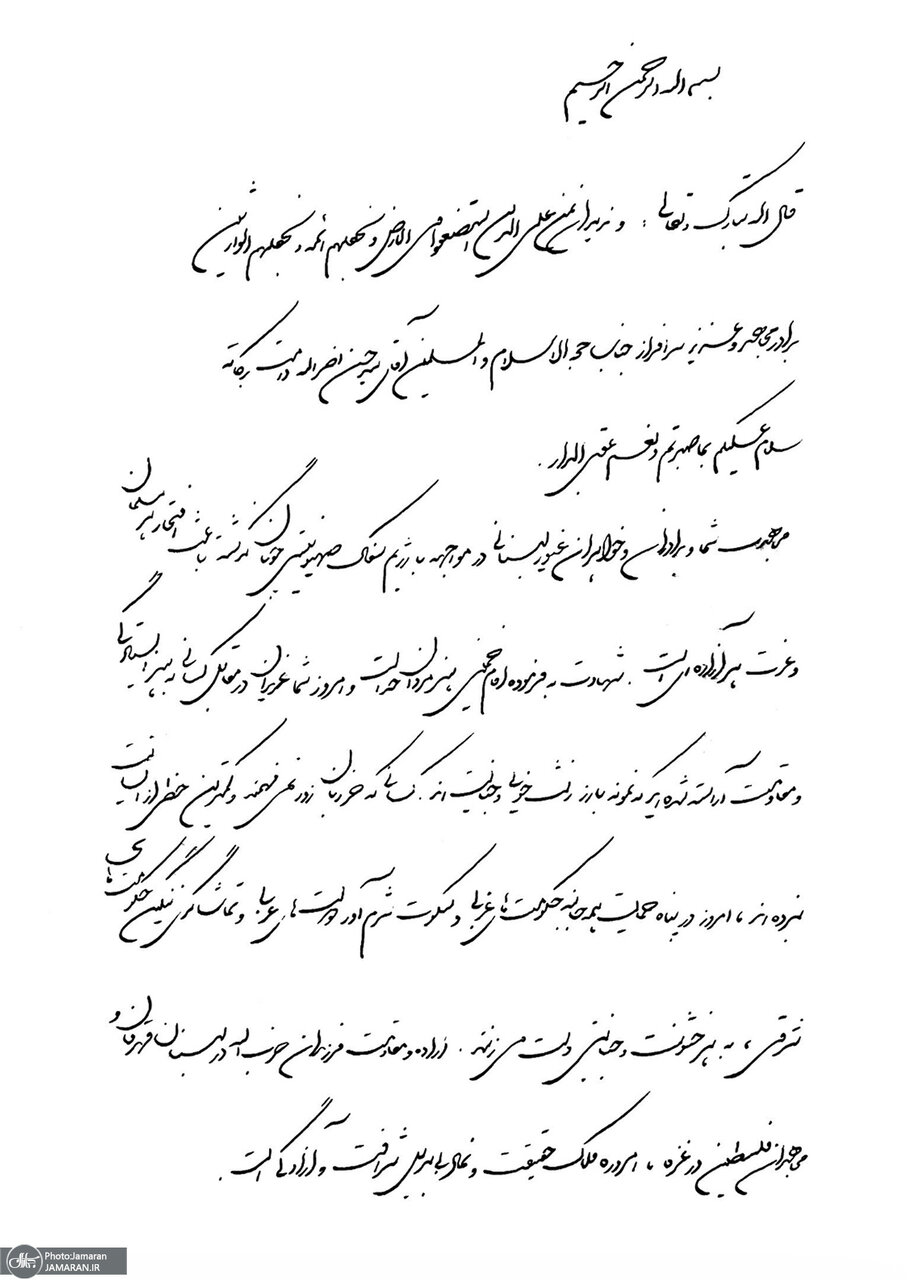 بسم الله الرحمن الرحیم
قال الله تبارک و تعالی : و نرید ان نمن علی الذین استضعفوا فی الارض و نجعلهم ائمه و نجعلهم الوارثین
برادر مجاهد و عزیز سرافراز جناب حجه الاسلام و المسلمین آقای سید حسن نصرالله دامت برکاته
سلام علیکم بما صبرتم و نعم عقبی الدار .
مجاهدت شما و برادران و خواهران غیور لبنانی در مواجهه با رژیم سفاک صهیونیستی چونان گذشته باعث افتخار هر مسلمان
و عزت هر آزاده ای است . شهادت به فرموده امام خمینی هنر مردان خداست و امروز شما عزیزان در مقابل کسانی به هنر ایستادگی
و مقاومت آراسته شده اید که نمونه بارز زشت خویی و جنایت اند . کسانی که جز زبان زور نمی فهمند و کمترین حظی از انسانیت
نبرده اند ، امروز در پناه حمایت همه جانبه حکومت های غربی و سکوت شرم آور دولت های عربی و تماشاگری ننگین حکومت های
شرقی ، به هر خشونت و جنایتی دست می زنند . اراده و مقاومت فرزندان حزب الله در لبنان قهرمان و
مجاهدان فلسطین در غزه ، امروزه ملاک حقیقت و نماد بی بدیل شرافت و آزادگی است .
Photo:Jamaran
JAMARAN.IR